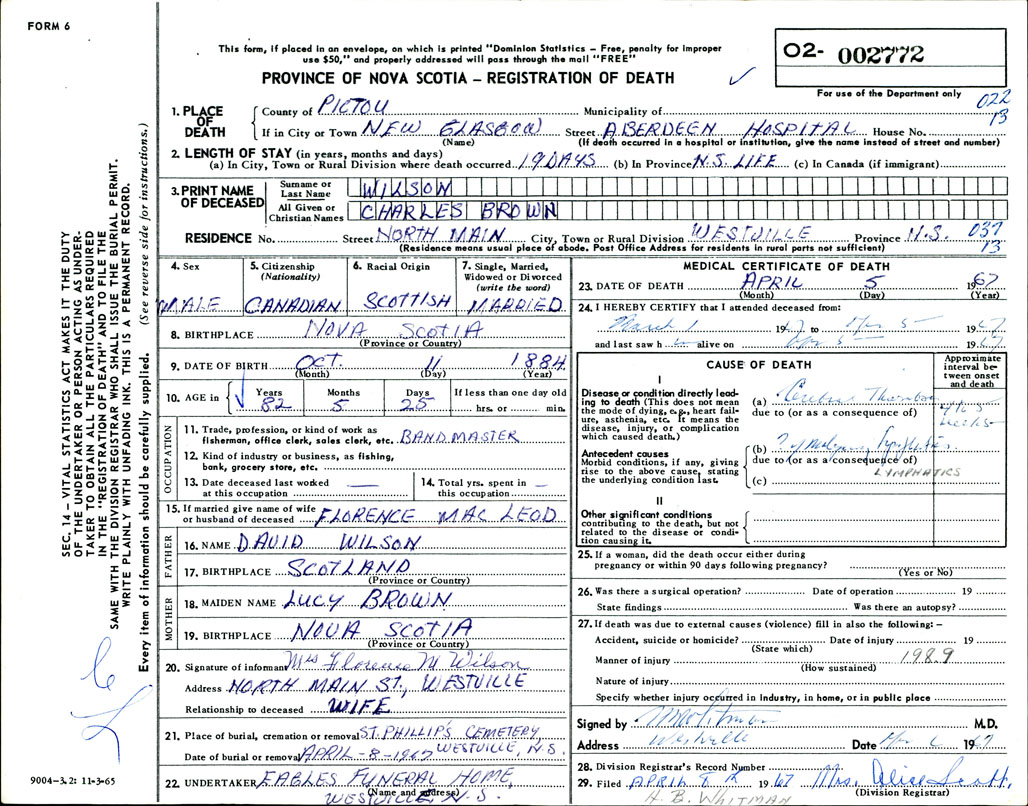 FORM 6
This form, if placed in an envelope, on which is printed "Dominion Statistics – Free, penalty for improper
use $50," and properly addressed will pass through the mail "FREE"
PROVINCE OF NOVA SCOTIA – REGISTRATION OF DEATH
O2- 002772
For use of the Department only
022
13
1. PLACE OF DEATH
County of PICTOU Municipality of
If in City or Town NEW GLASGOW Street ABERDEEN HOSPITAL House No.
(Name) (If death occurred in a hospital or institution, give the name instead of street and number)
2. LENGTH OF STAY (in years, months and days)
(a) In City, Town or Rural Division where death occurred 19 DAYS (b) In Province N.S. LIFE (c) In Canada (if immigrant)
3. PRINT NAME OF DECEASED
Surname or Last Name WILSON
All Given or Christian Names CHARLES BROWN
RESIDENCE No. Street NORTH MAIN City, Town or Rural Division WESTVILLE Province N.S. 037
13
(Residence means usual place of abode. Post Office Address for residents in rural parts not sufficient)
4. Sex
MALE
5. Citizenship
(Nationality)
CANADIAN
6. Racial Origin
SCOTTISH
7. Single, Married,
Widowed or Divorced
(write the word)
MARRIED
8. BIRTHPLACE NOVA SCOTIA
(Province or Country)
9. DATE OF BIRTH OCT. 11 1884
(Month) (Day) (Year)
10. AGE in Years Months Days If less than one day old
82 5 25 hrs. or min.
OCCUPATION
11. Trade, profession, or kind of work as
fisherman, office clerk, sales clerk, etc. BANDMASTER
12. Kind of industry or business, as fishing,
bank, grocery store, etc.
13. Date deceased last worked
at this occupation
14. Total yrs. spent in
this occupation
15. If married give name of wife
or husband of deceased FLORENCE MAC LEOD
FATHER
16. NAME DAVID WILSON
17. BIRTHPLACE SCOTLAND
(Province or Country)
MOTHER
18. MAIDEN NAME LUCY BROWN
19. BIRTHPLACE NOVA SCOTIA
(Province or Country)
20. Signature of informant Mrs Florence M Wilson
Address NORTH MAIN ST., WESTVILLE
Relationship to deceased WIFE
21. Place of burial, cremation or removal ST. PHILLIP'S CEMETERY,
WESTVILLE, N.S.
Date of burial or removal APRIL-8-1967
22. UNDERTAKER EAGLES FUNERAL HOME,
(Name and address)
WESTVILLE N.S.
MEDICAL CERTIFICATE OF DEATH
23. DATE OF DEATH APRIL 5 1967
(Month) (Day) (Year)
24. I HEREBY CERTIFY that I attended deceased from:
March 1 1967 to Apr 5 1967
and last saw h alive on Apr 5 1967
CAUSE OF DEATH
Approximate
interval be-
tween onset
and death
I
Disease or condition directly lead-
ing to death (This does not mean
the mode of dying, e.g., heart fail-
ure, asthenia, etc. It means the
disease, injury, or complication
which caused death.)
(a) Cerebral
due to (or as a consequence of)
Antecedent causes
Morbid conditions, if any, giving
rise to the above cause, stating
the underlying condition last.
(b) ? of Malignancy Lymphatics
due to (or as a consequence of)
LYMPHATICS
(c)
II
Other significant conditions
contributing to the death, but not
related to the disease or condi-
tion causing it.
25. If a woman, did the death occur either during
pregnancy or within 90 days following pregnancy?
(Yes or No)
26. Was there a surgical operation? Date of operation 19
State findings Was there an autopsy?
27. If death was due to external causes (violence) fill in also the following: –
Accident, suicide or homicide? Date of injury 19
(State which)
Manner of injury 198.9
(How sustained)
Nature of injury
Specify whether injury occurred in industry, in home, or in public place
Signed by M.D.
Address Westville Date Apr 6 1967
28. Division Registrar's Record Number
29. Filed APRIL 8th 1967 Mrs. Alice Scott,
(Division Registrar)
H. B. WHITMAN
SEC. 14 – VITAL STATISTICS ACT MAKES IT THE DUTY
OF THE UNDERTAKER OR PERSON ACTING AS UNDER-
TAKER TO OBTAIN ALL THE PARTICULARS REQUIRED
IN THE "REGISTRATION OF DEATH" AND TO FILE THE
SAME WITH THE DIVISION REGISTRAR WHO SHALL ISSUE THE BURIAL PERMIT.
WRITE PLAINLY WITH UNFADING INK. THIS IS A PERMANENT RECORD.
Every item of information should be carefully supplied. (See reverse side for instructions.)
9004–3.2: 11-3-65